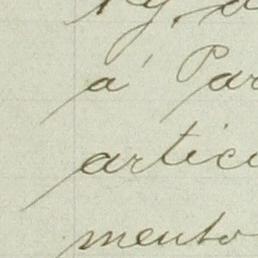 á Par
artic
mento